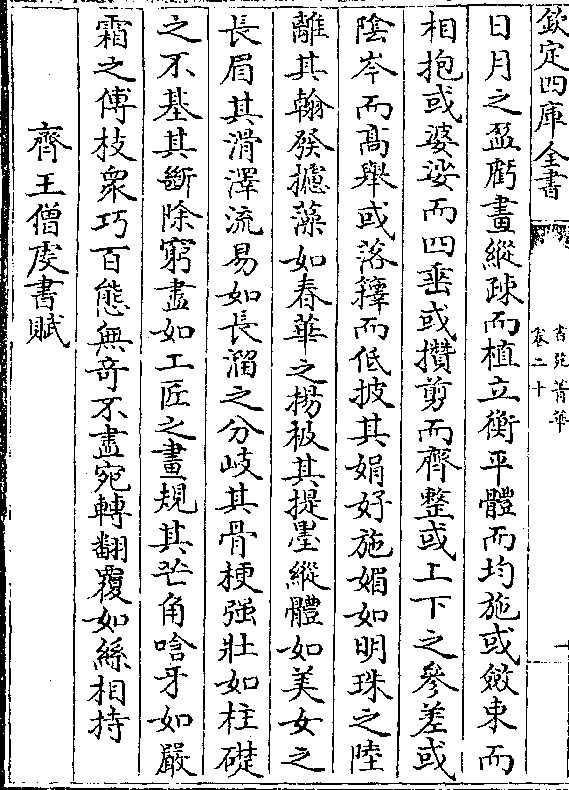 欽定四庫全書
書苑菁華
卷二十
一
日月之盈虧畫縱疎而植立衡平體而均施或斂束而
相抱或婆娑而四垂或攢剪而齊整或上下之參差或
陰岑而高舉或落籜而低披其娟好施媚如明珠之陸
離其翰發攄藻如春華之楊被其提墨縱體如美女之
長眉其滑澤流易如長溜之分岐其骨梗强壯如柱礎
之不基其斷除窮盡如工匠之畫規其芒角唅牙如嚴
霜之傅枝衆巧百態無奇不盡宛轉翻覆如絲相持
齊王僧虔書賦